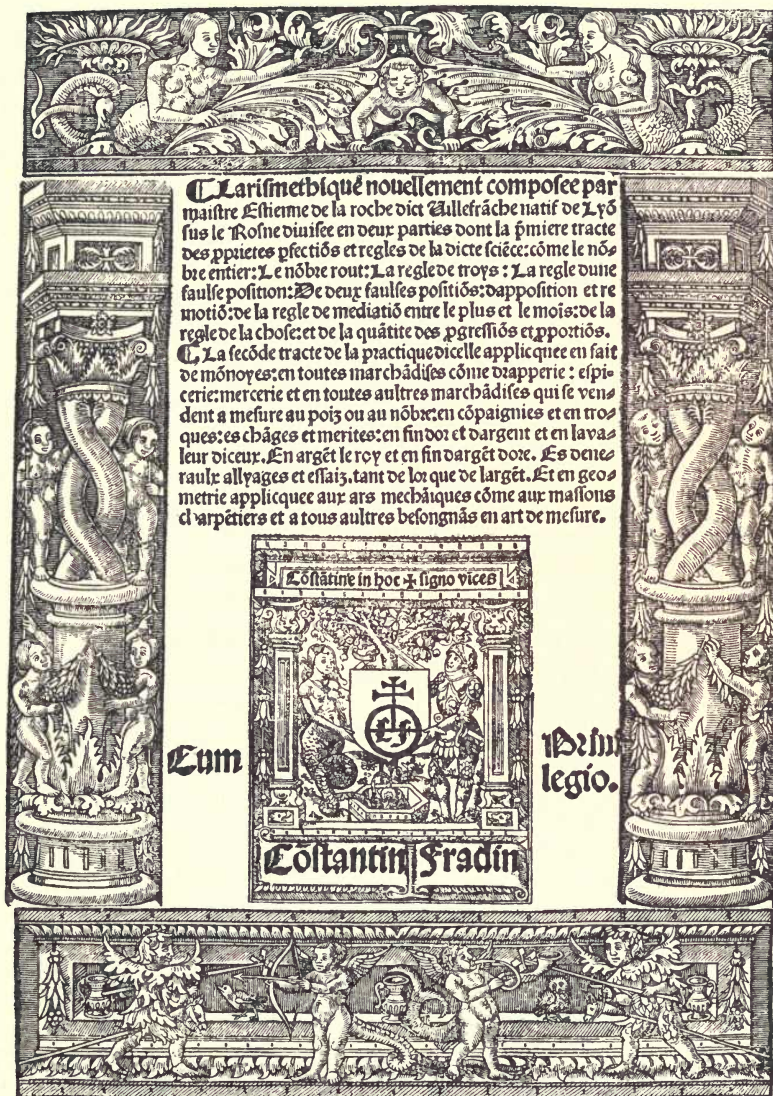 ¶ Larismethique nouellement composee par
maistre Estienne de la roche dict Uillefrãche natif de Lyõ
sus le Rosne diuisee en deux parties dont la p̃miere tracte
des ꝓprietes ꝑfectiõs et regles de la dicte sciẽce: cõme le nõ⸗
bre entier: Le nõbre rout: La regle de troys: La regle dune
faulse position: De deux faulses positiõs: dapposition et re
motiõ: de la regle de mediatiõ entre le plus et le mois: de la
regle de la chose: et de la quãtite des ꝓgressiõs et ꝓportiõs.
¶ La secõde tracte de la practique dicelle applicquee en fait
de mõnoyes: en toutes marchãdises cõme drapperie: espi⸗
cerie: mercerie et en toutes aultres marchãdises qui se ven⸗
dent a mesure au poiz ou au nõbre: en cõpaignies et en tro⸗
ques: es chãges et merites: en fin dor et dargent et en laua⸗
leur diceux. En argẽt le roy et en fin dargẽt dore. Es dene⸗
raulx allyages et essaiz. tant de lor que de largẽt. Et en geo⸗
metrie applicquee aux ars mechãiques cõme aux massons
charpẽtiers et a tous aultres besongnãs en art de mesure.
Cõstãtine in hoc ✠ signo vices
C F
Cum Priui
legio.
Cõstantin Fradin